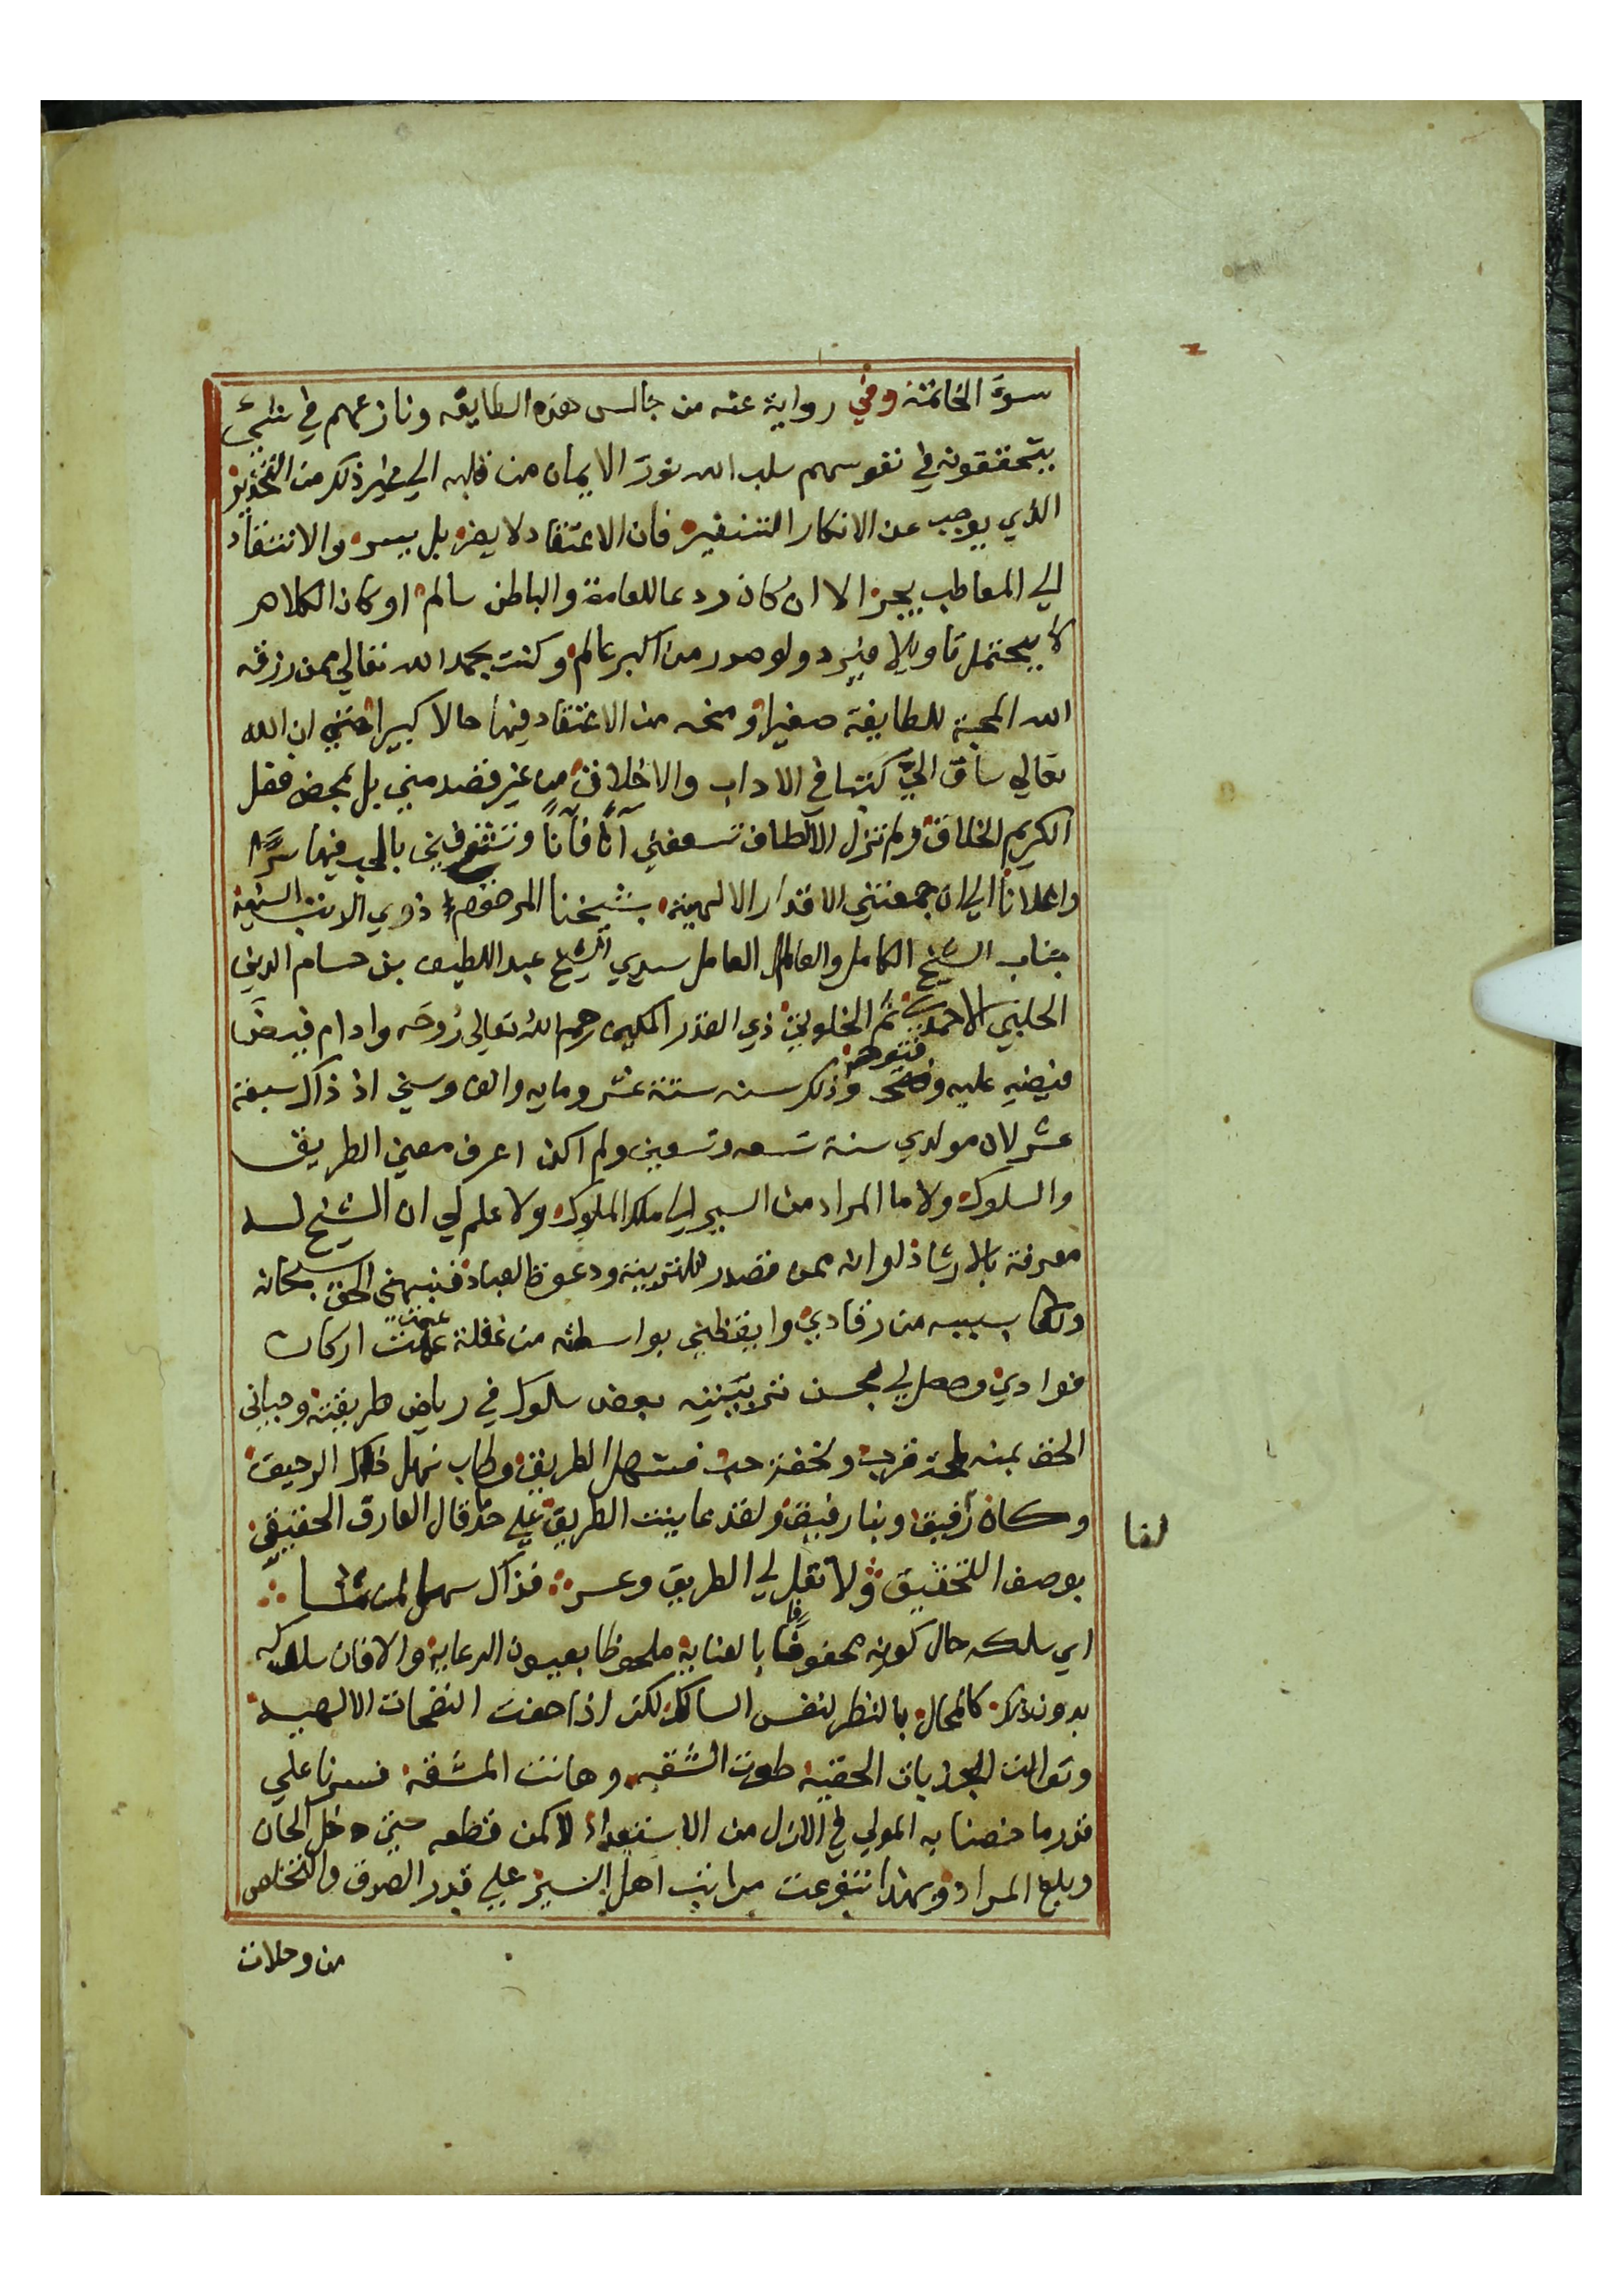 سوء الخاتمة وفي رواية عنه من جالس هذه الطايفه ونازعهم في شيئ
يتحققونه في نفوسهم سلب الله نور الايمان من قلبه الي غير ذلك من التحذير
الذي يوجب عن الانكار التنفير فان الاعتقاد لا يضر بل يسر والانتقاد
الي المعاطب يجر الا ان كان ردعا للعامة والباطن سالم او كان الكلام
لا يحتمل تاويلا فيرد ولو صدر من اكبر عالم وكنت بحمد الله تعالي ممن رزقه
الله المحبة للطايفة صغيرا ومنحه من الاعتقاد فيها حالا كبيرا حتي ان الله
تعالي ساق الي كتبا في الاداب والاخلاق من غير قصد مني بل بمحض فضل
الكريم الخلاق ولم تزل الالطاف تسعفني آنا فآنا وتشغفني بالحب فيها سرا
واعلانا الي ان جمعتني الاقدار الالهيه بشيخنا المرحوم ذوي الرتب السنية
جناب الشيخ الكامل والعالم العامل سيدي الشيخ عبد اللطيف بن حسام الدين
الحلبي الاحمدي ثم الخلوتي ذي القدر المكين رحم الله تعالى روحه وادام فيض
فيضه عليه وفتوحه وذلك سنه ستة عشر ومايه والف وسني اذ ذاك سبعة
عشر لان مولدي سنة تسعه وتسعين ولم اكن اعرف معني الطريق
والسلوك ولا ما المراد من السير الي ملك الملوك ولا علم لي ان الشيخ له
معرفة بالارشاد او انه ممن تصدر للتربية ودعوة العباد فنبهني الحق سبحانه
وتعا بسببه من رقادي وايقظني بواسطته من غفلة عمت اركان
فوادي وحصل لي بحسن تربيته بعض سلوك في رياض طريقته وحباني
الحق بمنه لمحة قرب ونفحة حب فسهل الطريق وطاب نهل ذلك الرحيق
وكان رفيق وبنا رفيق ولقد عاينت الطريق علي حد ما قال العارف الحقيقي
بوصف التحقيق ولا تقل لي الطريق وعر فذاك سهل لمن يشا
اي سلكه حال كونه محفوفا بالعناية ملحوظا بعيون الرعاية والا فان سلوكه
بدون ذلك كالمحال بالنظر لنفس السالك لكن اذا حفت النفحات الالهية
وتوالت الجذبات الحقية طوت الشقه وهانت المشقه فسرنا علي
قدر ما خصنا به المولي في الازل من الاستعداد لا كمن قطعه حتي دخل الحان
وبلغ المراد وبهذا تفرعت مراتب اهل السير علي قدر الصدق والتخلص
لفا
من وحلات